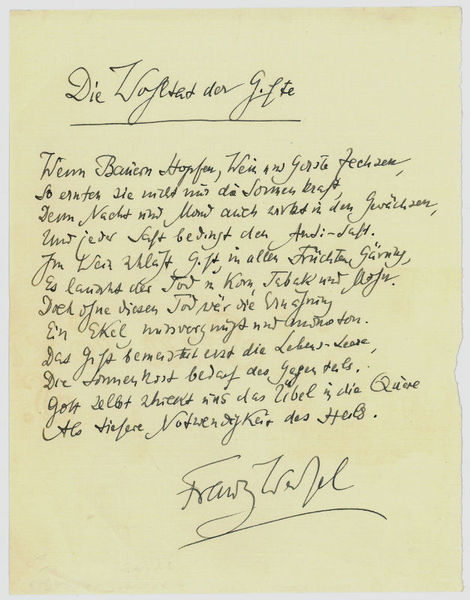 Die Wohltat der Gifte
Wenn Bauern Hopfen, Wein und Gerste fechsen,
So ernten sie nicht nur die Sonnenkraft,
Denn Nacht und Mond auch wirkt in den Gewächsen,
Und jeder Saft bedingt den Anti-Saft.
Im Wein schläft Gift, in allen Früchten Gärung,
Es lauscht der Tod in Korn, Tabak und Mohn.
Doch ohne diesen Tod wär die Ernährung
Ein Ekel, missvergnügt und monoton.
Das Gift bemeistert erst die Lebens-Leere,
Die Sonnenkost bedarf des Gegenteils.
Gott selbst schickt uns das Übel in die Quere
Als tiefere Notwendigkeit des Heils.
Franz Werfel